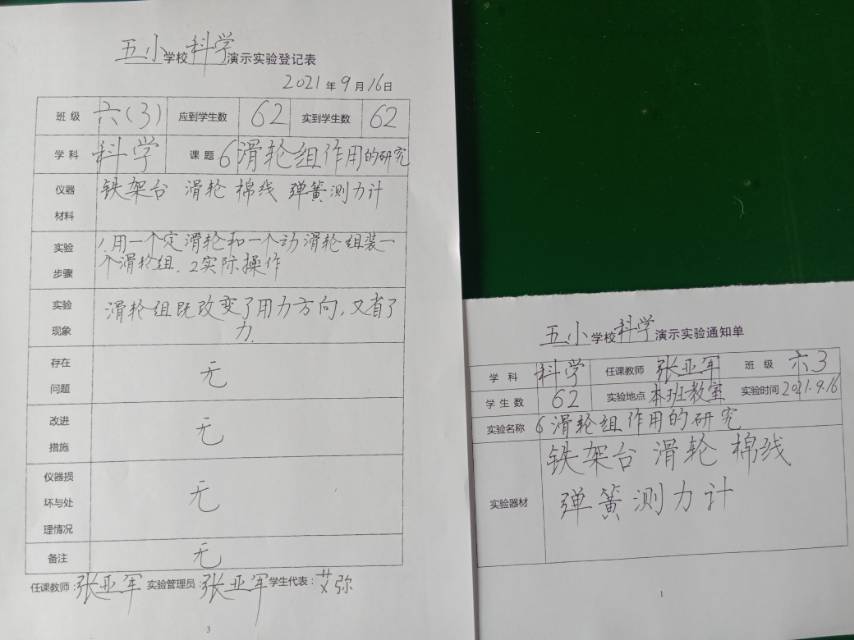 五小学校科学演示实验登记表
2021年9月16日
班级 六(3) 应到学生数 62 实到学生数 62
学科 科学 课题 6滑轮组作用的研究
仪器材料 铁架台 滑轮 棉线 弹簧测力计
实验步骤 1.用一个定滑轮和一个动滑轮组装一
个滑轮组.2实际操作
实验现象 滑轮组既改变了用力方向,又省了
力.
存在问题 无
改进措施 无
仪器损坏与处理情况 无
备注 无
任课教师:张亚军 实验管理员:张亚军 学生代表:艾弥
3
五小学校科学演示实验通知单
学科 科学 任课教师 张亚军 班级 六3
学生数 62 实验地点 本班教室 实验时间 2021.9.16
实验名称 6滑轮组作用的研究
实验器材 铁架台 滑轮 棉线
弹簧测力计
1